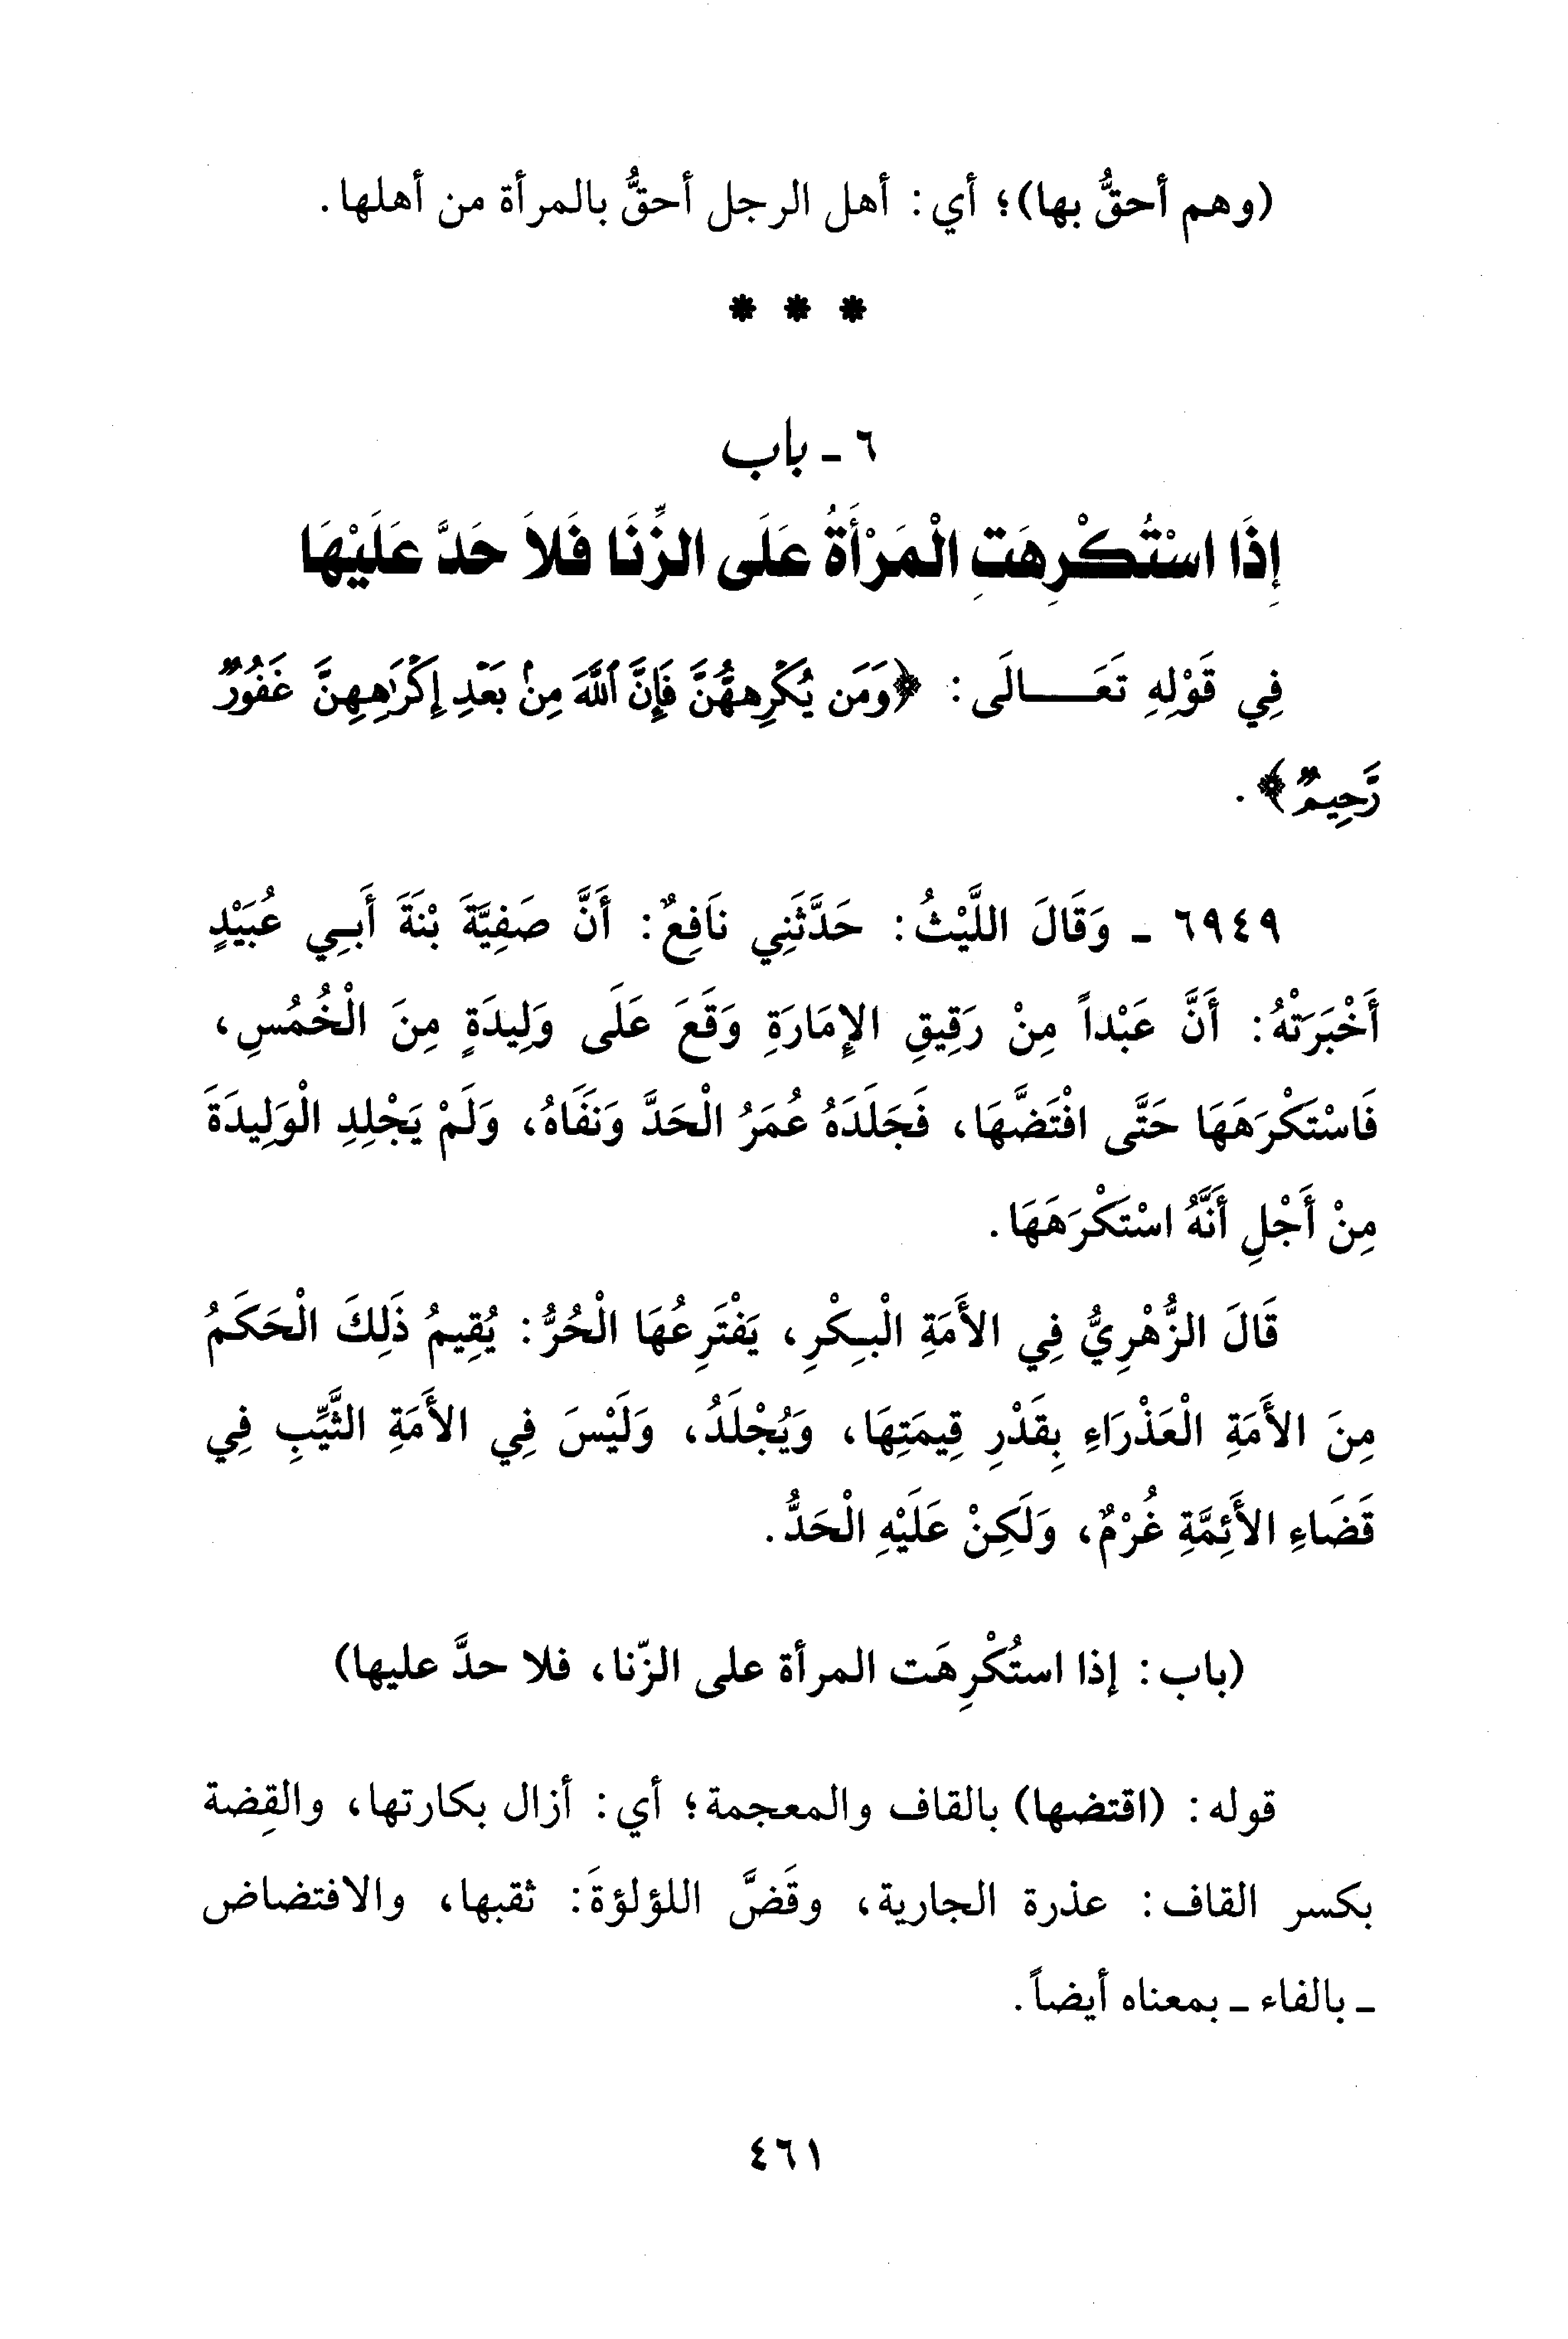 (وهم أحقُّ بها)؛ أي: أهل الرجل أحقُّ بالمرأة من أهلها.
* * *
٦ - باب
إِذَا اسْتُكْرِهَتِ الْمَرْأَةُ عَلَى الزِّنَا فَلاَ حَدَّ عَلَيْهَا
فِي قَوْلِهِ تَعَـــالَى: ﴿وَمَن يُكْرِههُّنَّ فَإِنَّ ٱللَّهَ مِنۢ بَعْدِ إِكْرَٰهِهِنَّ غَفُورٌ
رَّحِيمٌ﴾.
٦٩٤٩ - وَقَالَ اللَّيْثُ: حَدَّثَنِي نَافِعٌ: أَنَّ صَفِيَّةَ بْنَةَ أَبِي عُبَيْدٍ
أَخْبَرَتْهُ: أَنَّ عَبْداً مِنْ رَقِيقِ الإِمَارَةِ وَقَعَ عَلَى وَلِيدَةٍ مِنَ الْخُمُسِ،
فَاسْتَكْرَهَهَا حَتَّى افْتَضَّهَا، فَجَلَدَهُ عُمَرُ الْحَدَّ وَنَفَاهُ، وَلَمْ يَجْلِدِ الْوَلِيدَةَ
مِنْ أَجْلِ أَنَّهُ اسْتَكْرَهَهَا.
قَالَ الزُّهْرِيُّ فِي الأَمَةِ الْبِكْرِ، يَفْتَرِعُهَا الْحُرُّ: يُقِيمُ ذَلِكَ الْحَكَمُ
مِنَ الأَمَةِ الْعَذْرَاءِ بِقَدْرِ قِيمَتِهَا، وَيُجْلَدُ، وَلَيْسَ فِي الأَمَةِ الثَّيِّبِ فِي
قَضَاءِ الأَئِمَّةِ غُرْمٌ، وَلَكِنْ عَلَيْهِ الْحَدُّ.
(باب: إذا استُكْرِهَت المرأة على الزّنا، فلا حدَّ عليها)
قوله: (اقتضها) بالقاف والمعجمة؛ أي: أزال بكارتها، والقِضة
بكسر القاف: عذرة الجارية، وقَضَّ اللؤلؤةَ: ثقبها، والافتضاض
- بالفاء - بمعناه أيضاً.
٤٦١